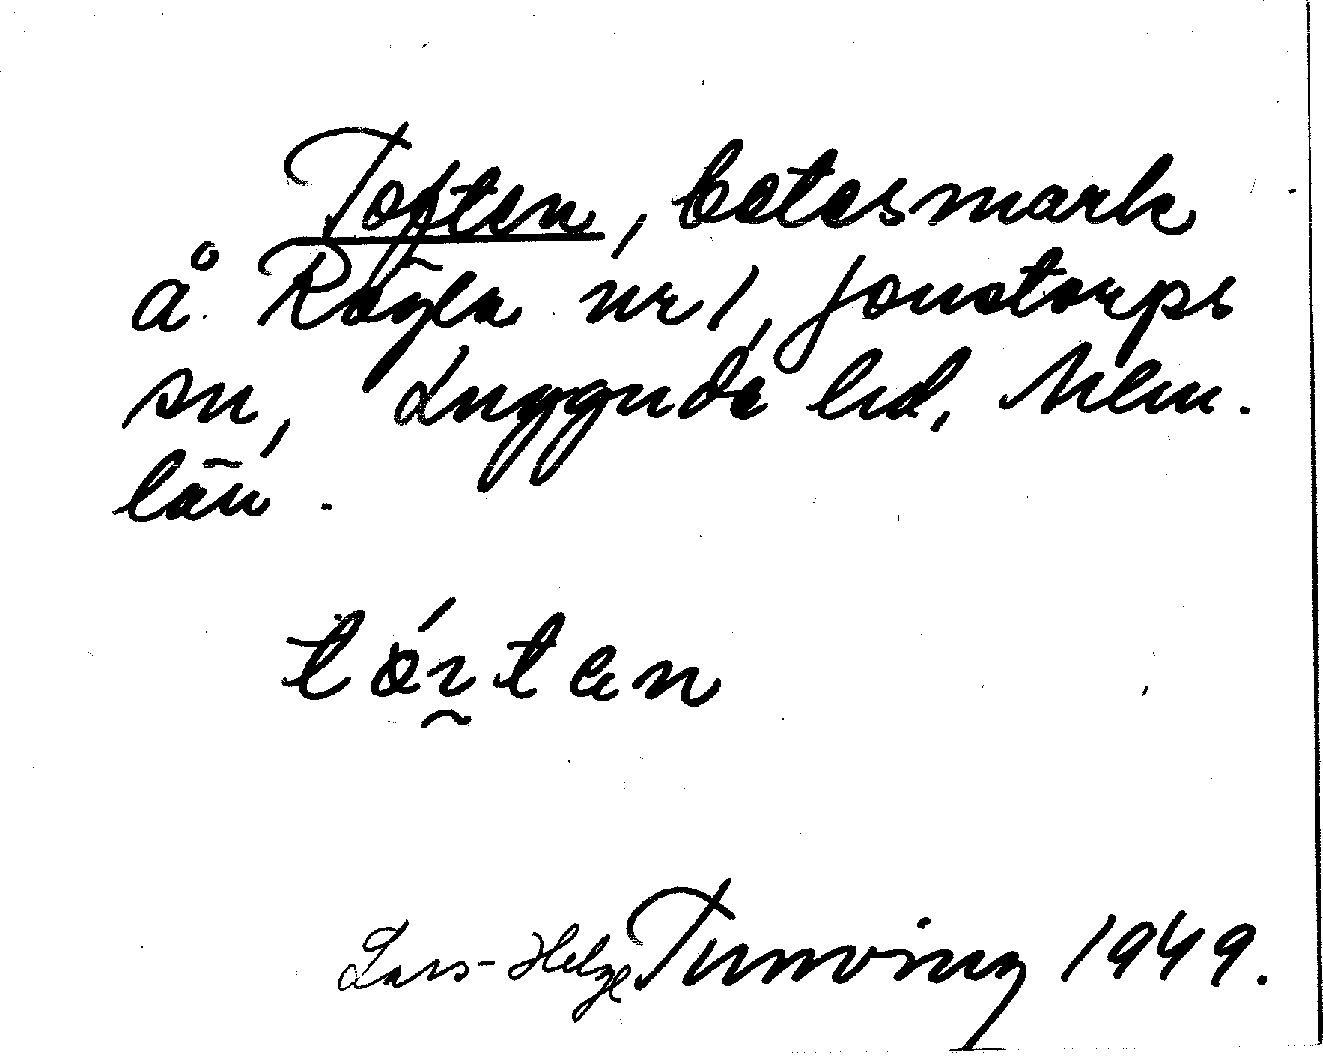 Toften, betesmark
å Rögla nr 1, Jonstorps
sn, Luggude hd, Mlm.
län.
tóften
Lars-Helge Tunving 1949.